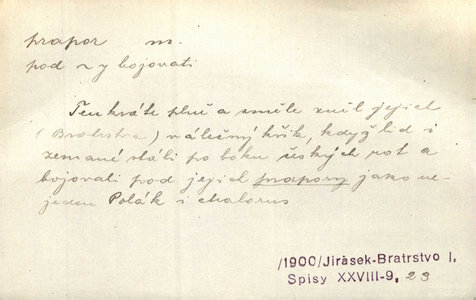 prapor m.
pod ~y bojovati
Tenkráte plně a směle zněl jejich
(Bratrstva) válečný křik, když lid i
zemané stáli po boku českých rot a
bojovali pod jejich prapory jako ne-
jeden Polák i chalorus
/1900/Jirásek-Bratrstvo I.
Spisy XXVIII-9, 23